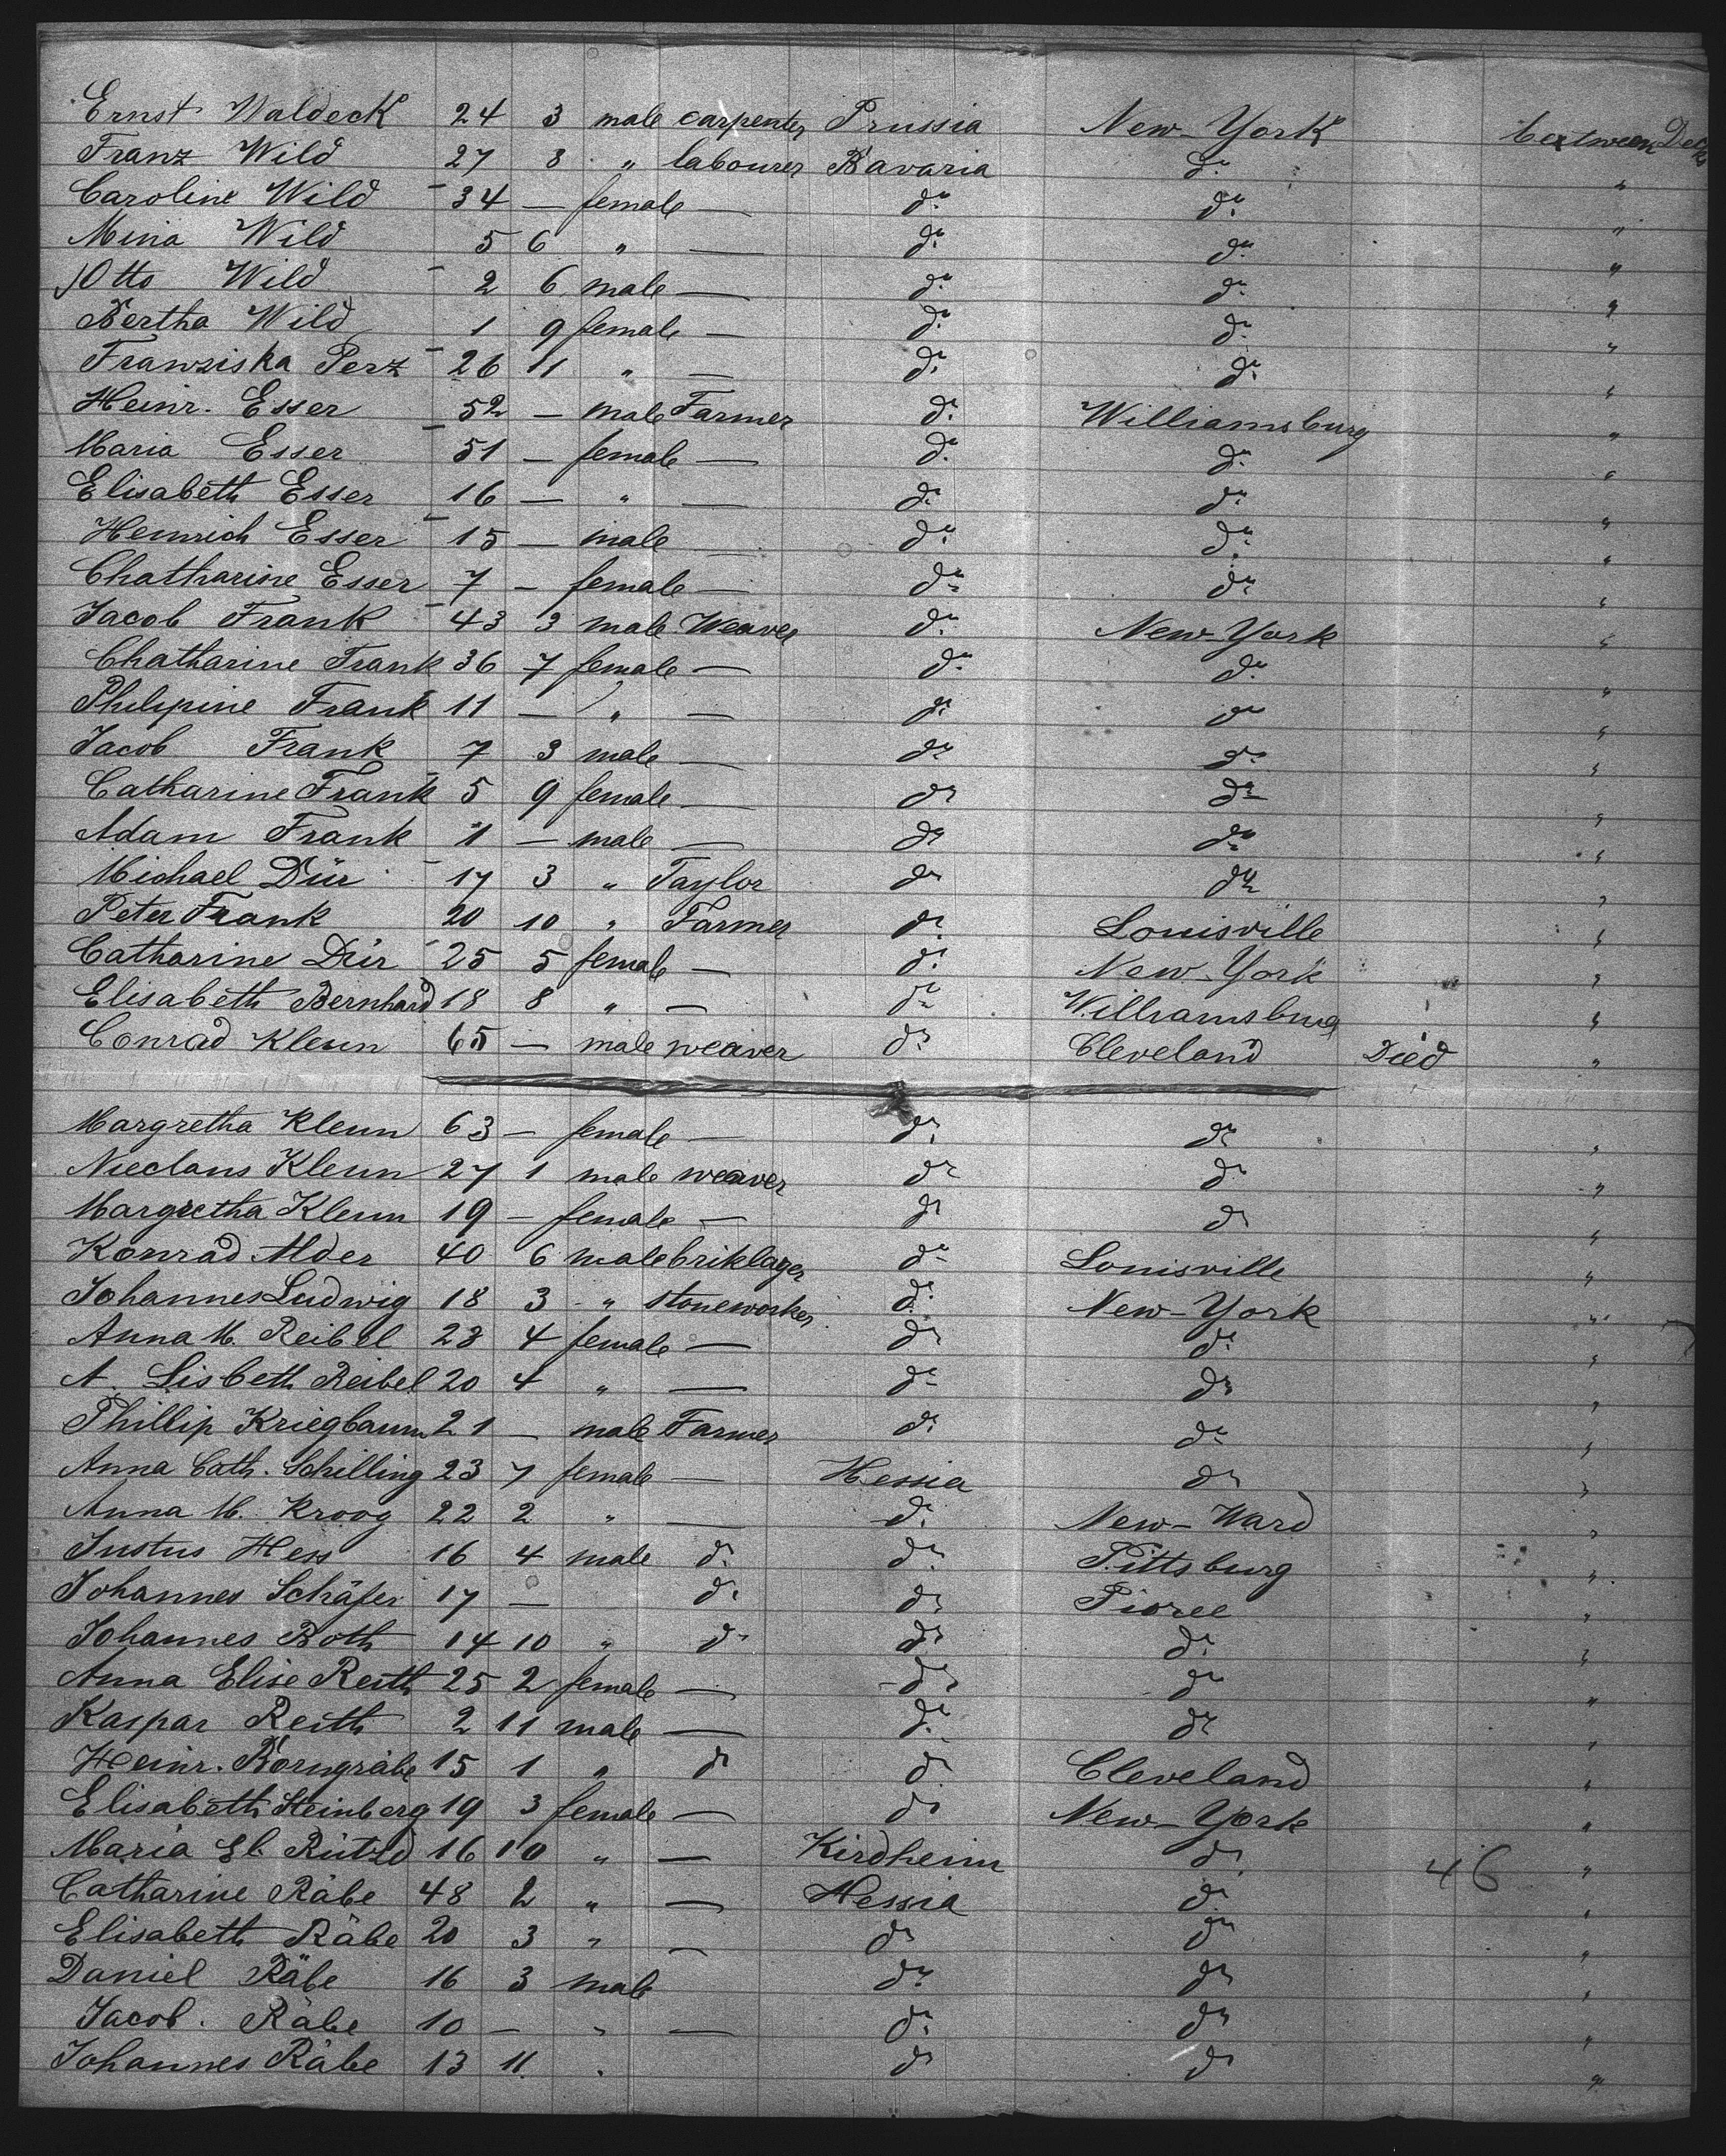 Ernst Waldeck 24 3 male carpenter Prussia New-York between Decks
Franz Wild 27 8 " labourer Bavaria do "
Caroline Wild 34 — female — do do "
Mina Wild 5 6 " — do do "
Otto Wild 2 6 male — do do "
Bertha Wild 1 9 female — do do "
Franziska Perz 26 11 " — do do "
Heinr. Esser 52 — male Farmer do Williamsburg "
Maria Esser 51 — female — do do "
Elisabeth Esser 16 — " — do do "
Heinrich Esser 15 — male — do do "
Chatharine Esser 7 — female — do do "
Jacob Frank 43 3 male Weaver do New-York "
Chatharine Frank 36 7 female — do do "
Philipine Frank 11 — " — do do "
Jacob Frank 7 3 male — do do "
Catharine Frank 5 9 female — do do "
Adam Frank 1 — male — do do "
Michael Dür 17 3 " Taylor do do "
Peter Frank 20 10 " Farmer do Louisville "
Catharine Dür 25 5 female — do New-York "
Elisabeth Bernhard 18 8 " — do Williamsburg "
Conrad Kleun 65 — male weaver do Cleveland Died "
Margretha Kleun 63 — female — do do "
Nieclaus Kleun 27 1 male weaver do do "
Margretha Kleun 19 — female — do do "
Konrad Alder 40 6 male briklager do Louisville "
Johannes Ludwig 18 3 " stoneworker do New-York "
Anna M. Reibel 23 4 female — do do "
A. Lisbeth Reibel 20 4 " — do do "
Phillip Kriegbaum 21 — male Farmer do do "
Anna Cath. Schilling 23 7 female — Hessia do "
Anna M. Kroog 22 2 " — do New-Ward "
Justus Hess 16 4 male do do Pittsburg "
Johannes Schäfer 17 — do do Pioree "
Johannes Roth 14 10 " do do do "
Anna Elise Reith 25 2 female — do do "
Kaspar Reith 2 11 male — do do "
Heinr. Borngräbe 15 1 " do do Cleveland "
Elisabeth Steinberg 19 3 female — do New-York "
Maria El. Rützd 16 10 " — Kirdheim do 46 "
Catharine Räbe 48 2 " — Hessia do "
Elisabeth Räbe 20 3 " — do do "
Daniel Räbe 16 3 male do do "
Jacob. Räbe 10 — " — do do "
Johannes Räbe 13 11 " do do "